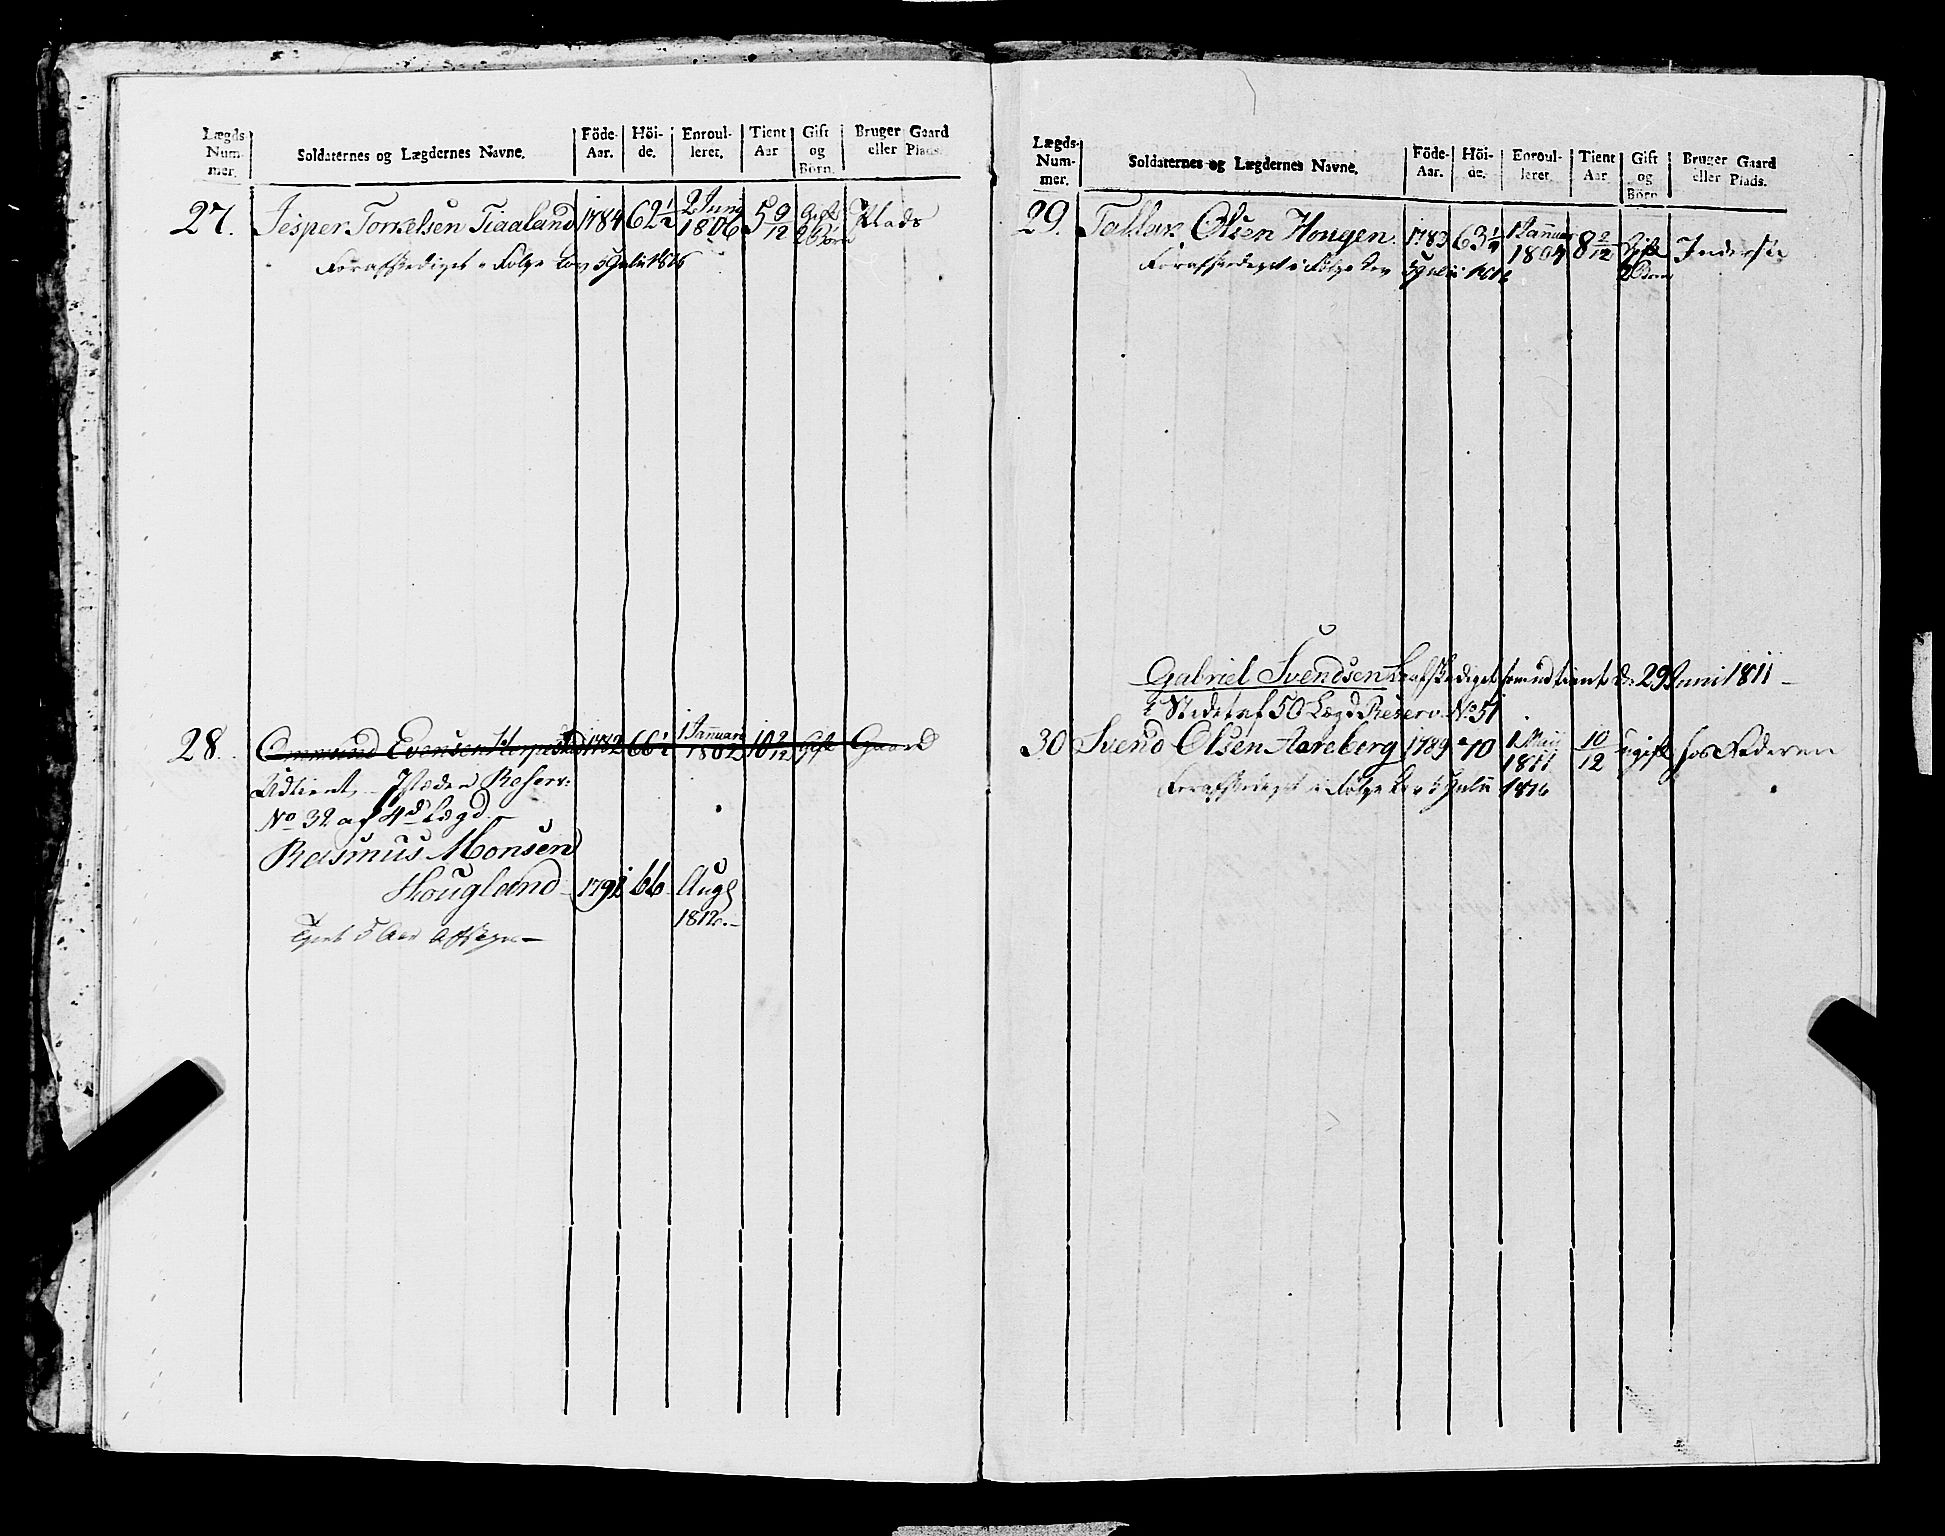 Lægds Num- mer. Soldaternes og Lægdernes Navne. Föde- Aar. Höi- de. Enroul- leret. Tient Aar Gift og Börn. Bruger Gaard eller Plads.
27. Jesper Torkelsen Tiaaland 1784 62 1/2 2 Juni 1806 5 9/12 Gift 2 Börn Plads
Forafskediget i Følge Lov 5 Julii 1816
28. Ommund Evensen 1782 66 1/2 1 Januari 1802 10 2/12 Gift Gaard
Udtient, Istæden Reserv:
No 32 af 4d Lægd
Rasmus Monsen
Skougland 1792 66 Augs 1812.
Tient 5 Aar
Lægds- Num- mer. Soldaternes og Lægdernes Navne. Föde- Aar. Höi- de. Enroul- leret. Tient Aar Gift og Börn Bruger Gaard eller Plads.
29. Tallak Olsen Hougen 1783 63 1/4 1 Januar 1804 8 2/12 Gift 2 Börn Inderste
Forafskediget i Følge Lov 5 Julii 1816
Gabriel Svendsen afskediget som udtient d. 29 Juni 1811
i Stedet af 50 Lægd Reserv No 51
30 Svend Olsen Aareberg 1789 70 1 Maii 1811 10/12 ugift hos Faderen
Forafskediget i Følge Lov 5 Julii 1816